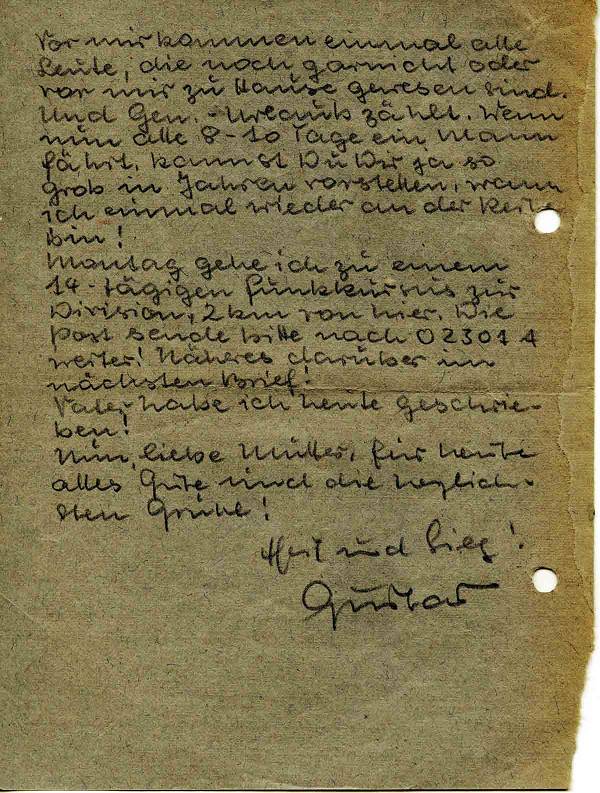 Vor mir kommen einmal alle
Leute, die noch garnicht oder
vor mir zu Hause gewesen sind.
Und Gen.-Urlaub zählt. Wenn
nun alle 8-10 Tage ein Mann
fährt, kannst Du Dir ja so
grob in Jahren vorstellen, wann
ich einmal wieder an der Reihe
bin!
Montag gehe ich zu einem
14-tägigen Funkkursus zur
Division, 2 km von hier. Die
Post sende bitte nach 02301 A
weiter! Näheres darüber im
nächsten Brief!
Vater habe ich heute geschrie-
ben!
Nun, liebe Mutter, für heute
alles Gute und die herzlich-
sten Grüße!
Heil und Sieg!
Gustav